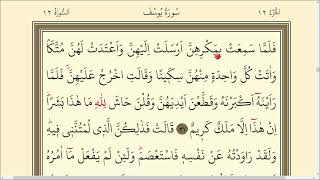 الجزء ١٢ سورة يوسف السورة ١٢
فَلَمَّا سَمِعَتْ بِمَكْرِهِنَّ اَرْسَلَتْ اِلَيْهِنَّ وَاَعْتَدَتْ لَهُنَّ مُتَّكَاً
وَاٰتَتْ كُلَّ وَاحِدَةٍ مِنْهُنَّ سِكّ۪ينًا وَقَالَتِ اخْرُجْ عَلَيْهِنَّۚ فَلَمَّا
رَاَيْنَهُٓ اَكْبَرْنَهُ وَقَطَّعْنَ اَيْدِيَهُنَّ وَقُلْنَ حَاشَ لِلّٰهِ مَا هٰذَا بَشَرًاۜ
اِنْ هٰذَٓا اِلَّا مَلَكٌ كَر۪يمٌ ﴿٣١﴾ قَالَتْ فَذٰلِكُنَّ الَّذ۪ي لُمْتُنَّن۪ي ف۪يهِۜ
وَلَقَدْ رَاوَدْتُهُ عَنْ نَفْسِه۪ فَاسْتَعْصَمَۜ وَلَئِنْ لَمْ يَفْعَلْ مَٓا اٰمُرُهُ